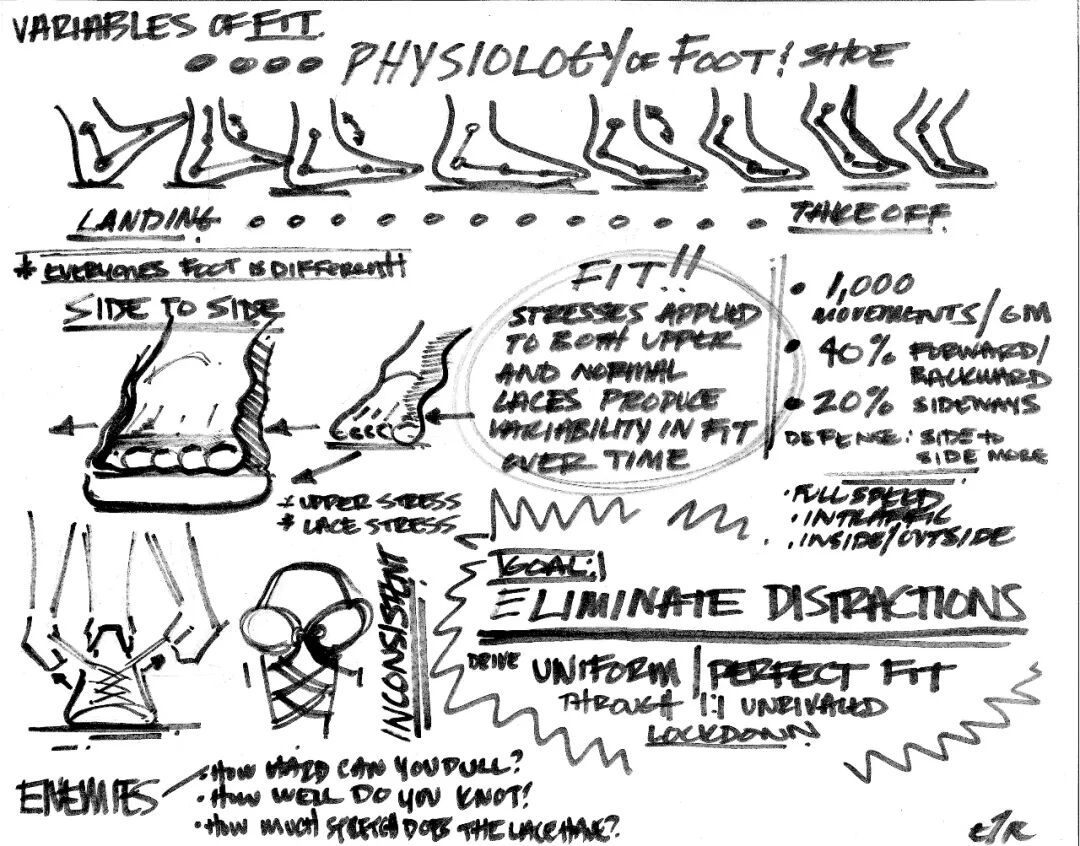 VARIABLES OF FIT.
PHYSIOLOGY OF FOOT & SHOE
LANDING
TAKE OFF
* EVERYONES FOOT IS DIFFERENT
SIDE TO SIDE
* UPPER STRESS
* LACE STRESS
FIT!!
STRESSES APPLIED
TO BOTH UPPER
AND NORMAL
LACES PRODUCE
VARIABILITY IN FIT
OVER TIME
• 1,000
MOVEMENTS/GM
• 40% FORWARD/
BACKWARD
• 20% SIDEWAYS
DEFENSE: SIDE TO
SIDE MORE
• FULL SPEED
• IN TRAFFIC
• INSIDE/OUTSIDE
INCONSISTENT
GOAL:
ELIMINATE DISTRACTIONS
DRIVE UNIFORM/PERFECT FIT
THROUGH 1:1 UNRIVALED
LOCKDOWN
ENEMIES
• HOW HARD CAN YOU PULL?
• HOW WELL DO YOU KNOT?
• HOW MUCH STRETCH DOES THE LACE HAVE?